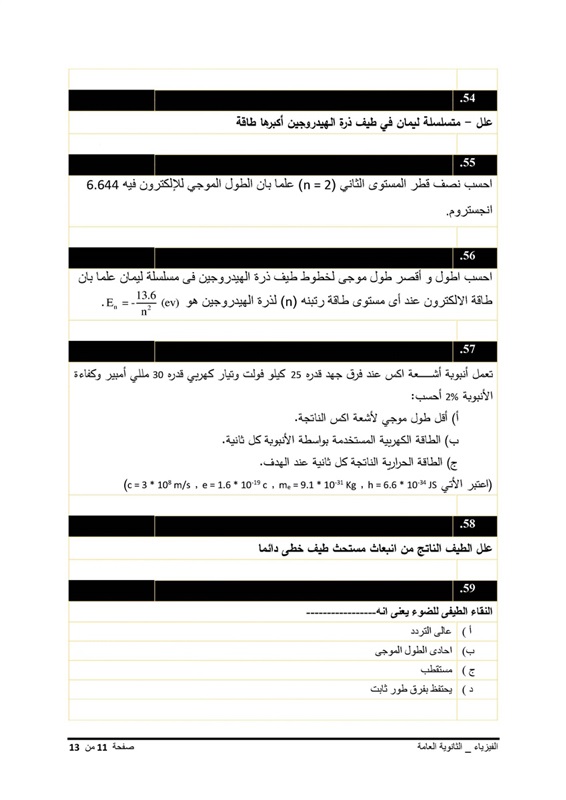 .54
علل – متسلسلة ليمان في طيف ذرة الهيدروجين أكبرها طاقة
.55
احسب نصف قطر المستوى الثاني (n = 2) علما بان الطول الموجي للإلكترون فيه 6.644
انجستروم.
.56
احسب اطول و أقصر طول موجى لخطوط طيف ذرة الهيدروجين فى مسلسلة ليمان علما بان
طاقة الالكترون عند أى مستوى طاقة رتبته (n) لذرة الهيدروجين هو E_n = -13.6/n² (ev) .
.57
تعمل أنبوبة أشـــعة اكس عند فرق جهد قدره 25 كيلو فولت وتيار كهربي قدره 30 مللي أمبير وكفاءة
الأنبوبة 2% أحسب:
أ) أقل طول موجي لأشعة اكس الناتجة.
ب) الطاقة الكهربية المستخدمة بواسطة الأنبوبة كل ثانية.
ج) الطاقة الحرارية الناتجة كل ثانية عند الهدف.
(اعتبر الأتي c = 3 * 10⁸ m/s , e = 1.6 * 10⁻¹⁹ c , mₑ = 9.1 * 10⁻³¹ Kg , h = 6.6 * 10⁻³⁴ JS)
.58
علل الطيف الناتج من انبعاث مستحث طيف خطى دائما
.59
النقاء الطيفى للضوء يعنى انه-----------------
أ ) عالى التردد
ب) احادى الطول الموجى
ج ) مستقطب
د ) يحتفظ بفرق طور ثابت
الفيزياء _ الثانوية العامة
صفحة 11 من 13